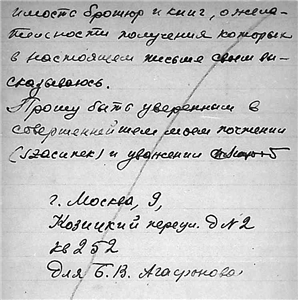 имость брошюр и книг, о жела-
тельности получения которых
в настоящем письме своем вы-
сказываюсь.
Прошу быть уверенным в
совершеннейшем моем почтении
и уважении
г. Москва, 9,
Козицкий переул. д №2
кв 252
Для Б. В. Агафонова